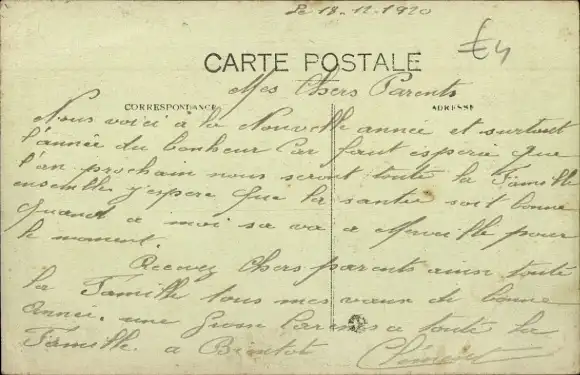 Le 18-12-1920
£4
CARTE POSTALE
Mes Chers Parents
CORRESPONDANCE
ADRESSE
Nous voici à la Nouvelle année et surtout
l'année du bonheur Car faut espérié que
l'an prochain nous seront toute la Famille
ensemble j'espere que la santée soit bonne
quand a moi sa va a Merveille pour
le moment.
Recevez Chers parents ainsi toute
la Famille tous mes vœux de bonne
année. une Grosse Caresses a toute la
Famille. a Bientot